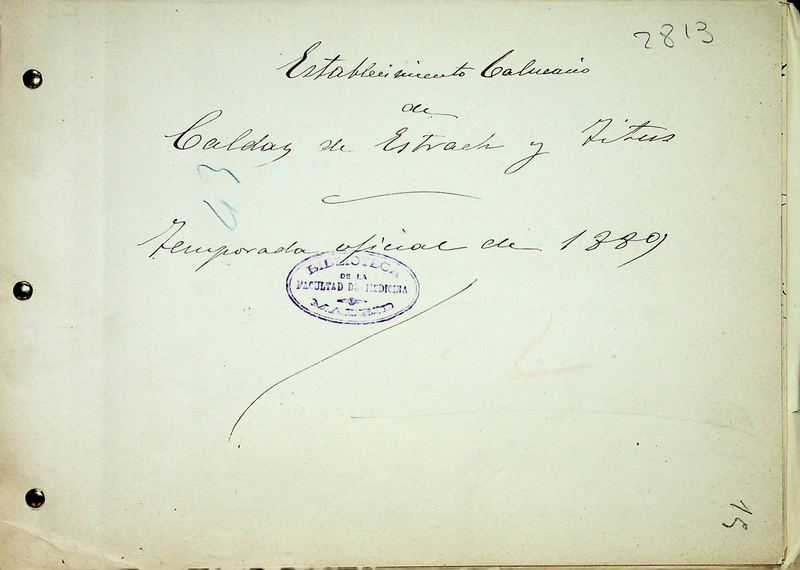 2813
Establecimiento Balneario
de
Caldas de Estrach y Titus
43
Temporada oficial de 1889
BIBLIOTECA
DE LA
FACULTAD DE MEDICINA
MADRID